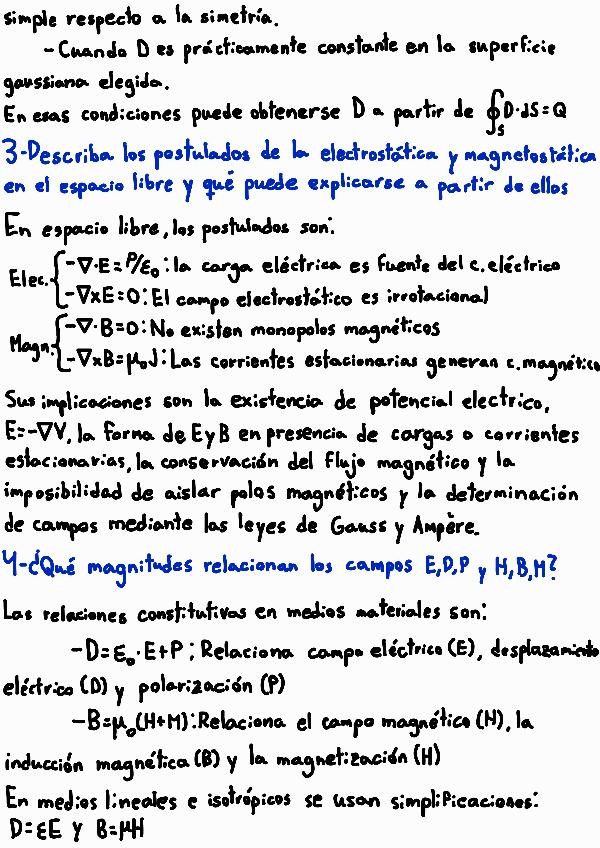 simple respecto a la simetría.
- Cuando D es prácticamente constante en la superficie
gaussiana elegida.
En esas condiciones puede obtenerse D a partir de ∮_S D·dS=Q
3-Describa los postulados de la electrostática y magnetostática
en el espacio libre y qué puede explicarse a partir de ellos
En espacio libre, los postulados son:
Elec. { -∇·E=ρ/ε₀: la carga eléctrica es fuente del c. eléctrico
-∇xE=0: El campo electrostático es irrotacional
Magn. { -∇·B=0: No existen monopolos magnéticos
-∇xB=μ₀J: Las corrientes estacionarias generan c. magnético
Sus implicaciones son la existencia de potencial electrico,
E=-∇V, la forma de E y B en presencia de cargas o corrientes
estacionarias, la conservación del flujo magnético y la
imposibilidad de aislar polos magnéticos y la determinación
de campos mediante las leyes de Gauss y Ampère.
4-¿Qué magnitudes relacionan los campos E,D,P y H,B,M?
Las relaciones constitutivas en medios materiales son:
-D=ε₀·E+P: Relaciona campo eléctrico (E), desplazamiento
eléctrico (D) y polarización (P)
-B=μ₀(H+M): Relaciona el campo magnético (H), la
inducción magnética (B) y la magnetización (H)
En medios lineales e isotrópicos se usan simplificaciones:
D=εE y B=μH